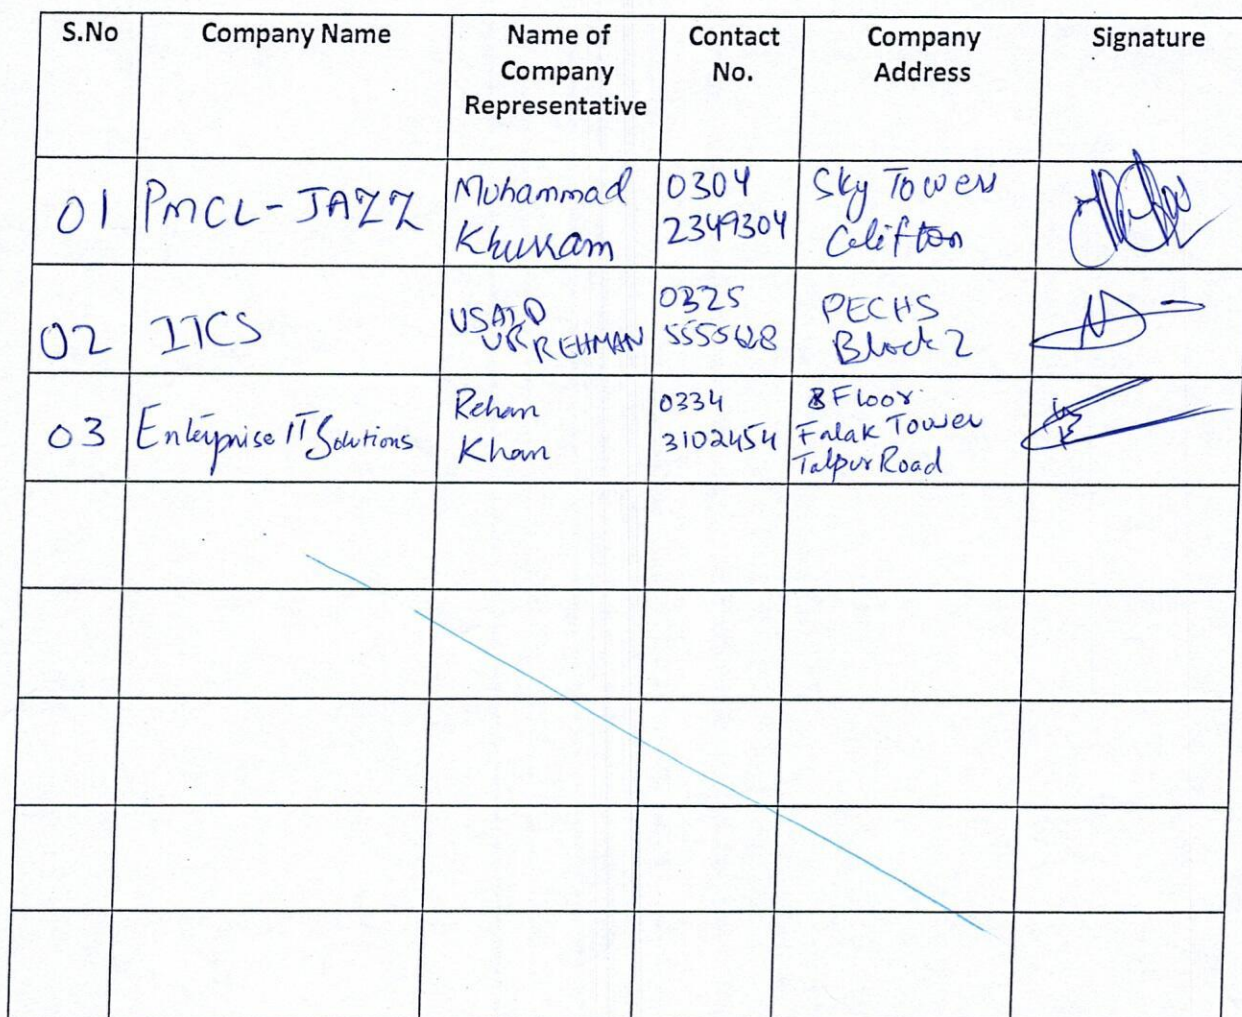 S.No Company Name Name of Company Representative Contact No. Company Address Signature
01 PMCL-JAZZ Muhammad Khurram 0304 2349304 Sky Towers Clifton
02 IICS UR REHMAN 0325 PECHS Block 2
03 Enterprise IT Solutions Rehan Khan 0334 3102454 8 Floor Falak Tower Talpur Road